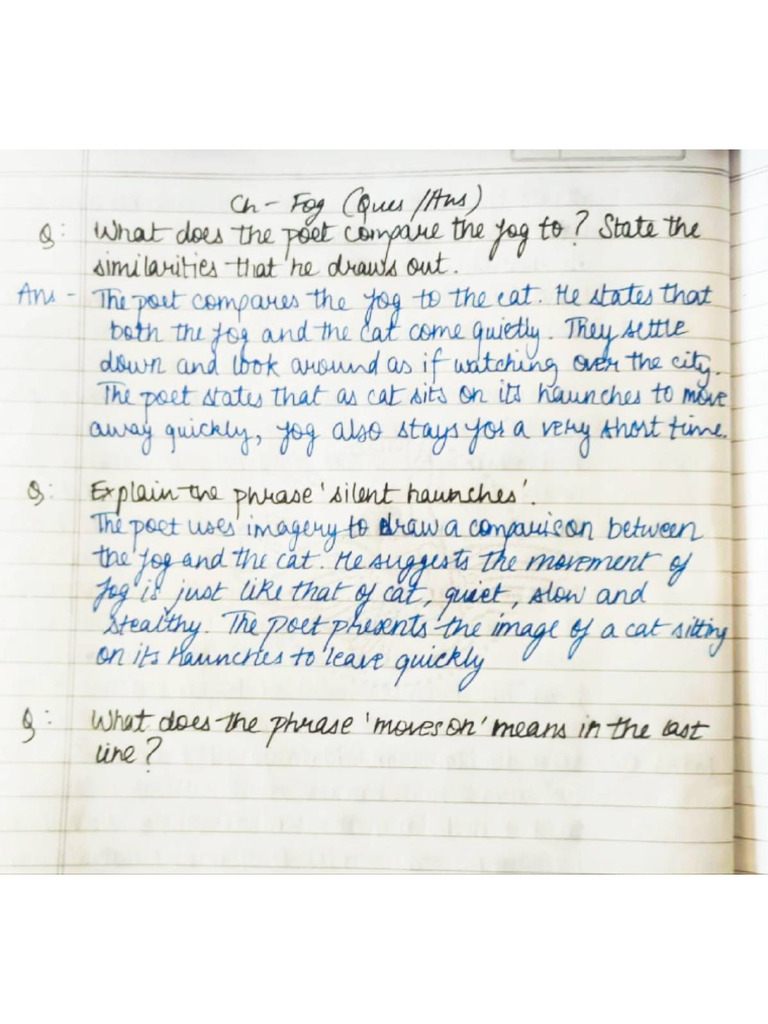 Ch - Fog (Ques/Ans)
Q: What does the poet compare the fog to? State the
similarities that he draws out.
Ans - The poet compares the fog to the cat. He states that
both the fog and the cat come quietly. They settle
down and look around as if watching over the city.
The poet states that as cat sits on its haunches to move
away quickly, fog also stays for a very short time.
Q: Explain the phrase 'silent haunches'.
The poet uses imagery to draw a comparison between
the fog and the cat. He suggests the movement of
fog is just like that of cat, quiet, slow and
stealthy. The poet presents the image of a cat sitting
on its haunches to leave quickly
Q: What does the phrase 'moves on' means in the last
line?